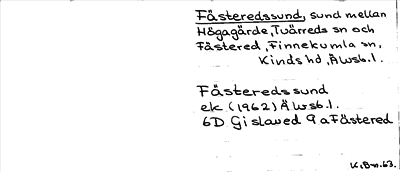 Fästeredssund, sund mellan
Högagärde, Tvärreds sn och
Fästered, Finnekumla sn,
Kinds hd, Älvsb.l.
Fästeredssund
ek (1962) Älvsb.l.
6D Gislaved 9a Fästered
K.B-n.63.